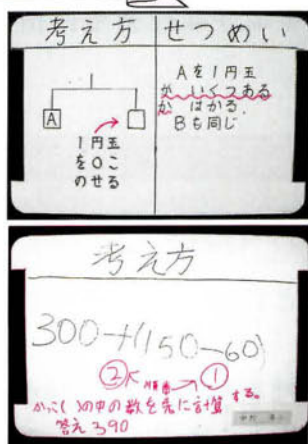 考え方
せつめい
A
1円玉
を○こ
のせる
Aを1円玉
が いくつある
か はかる.
Bも同じ.
考え方
300+(150-60)
②←順番→①
かっこ( )の中の数を先に計算する。
答え390